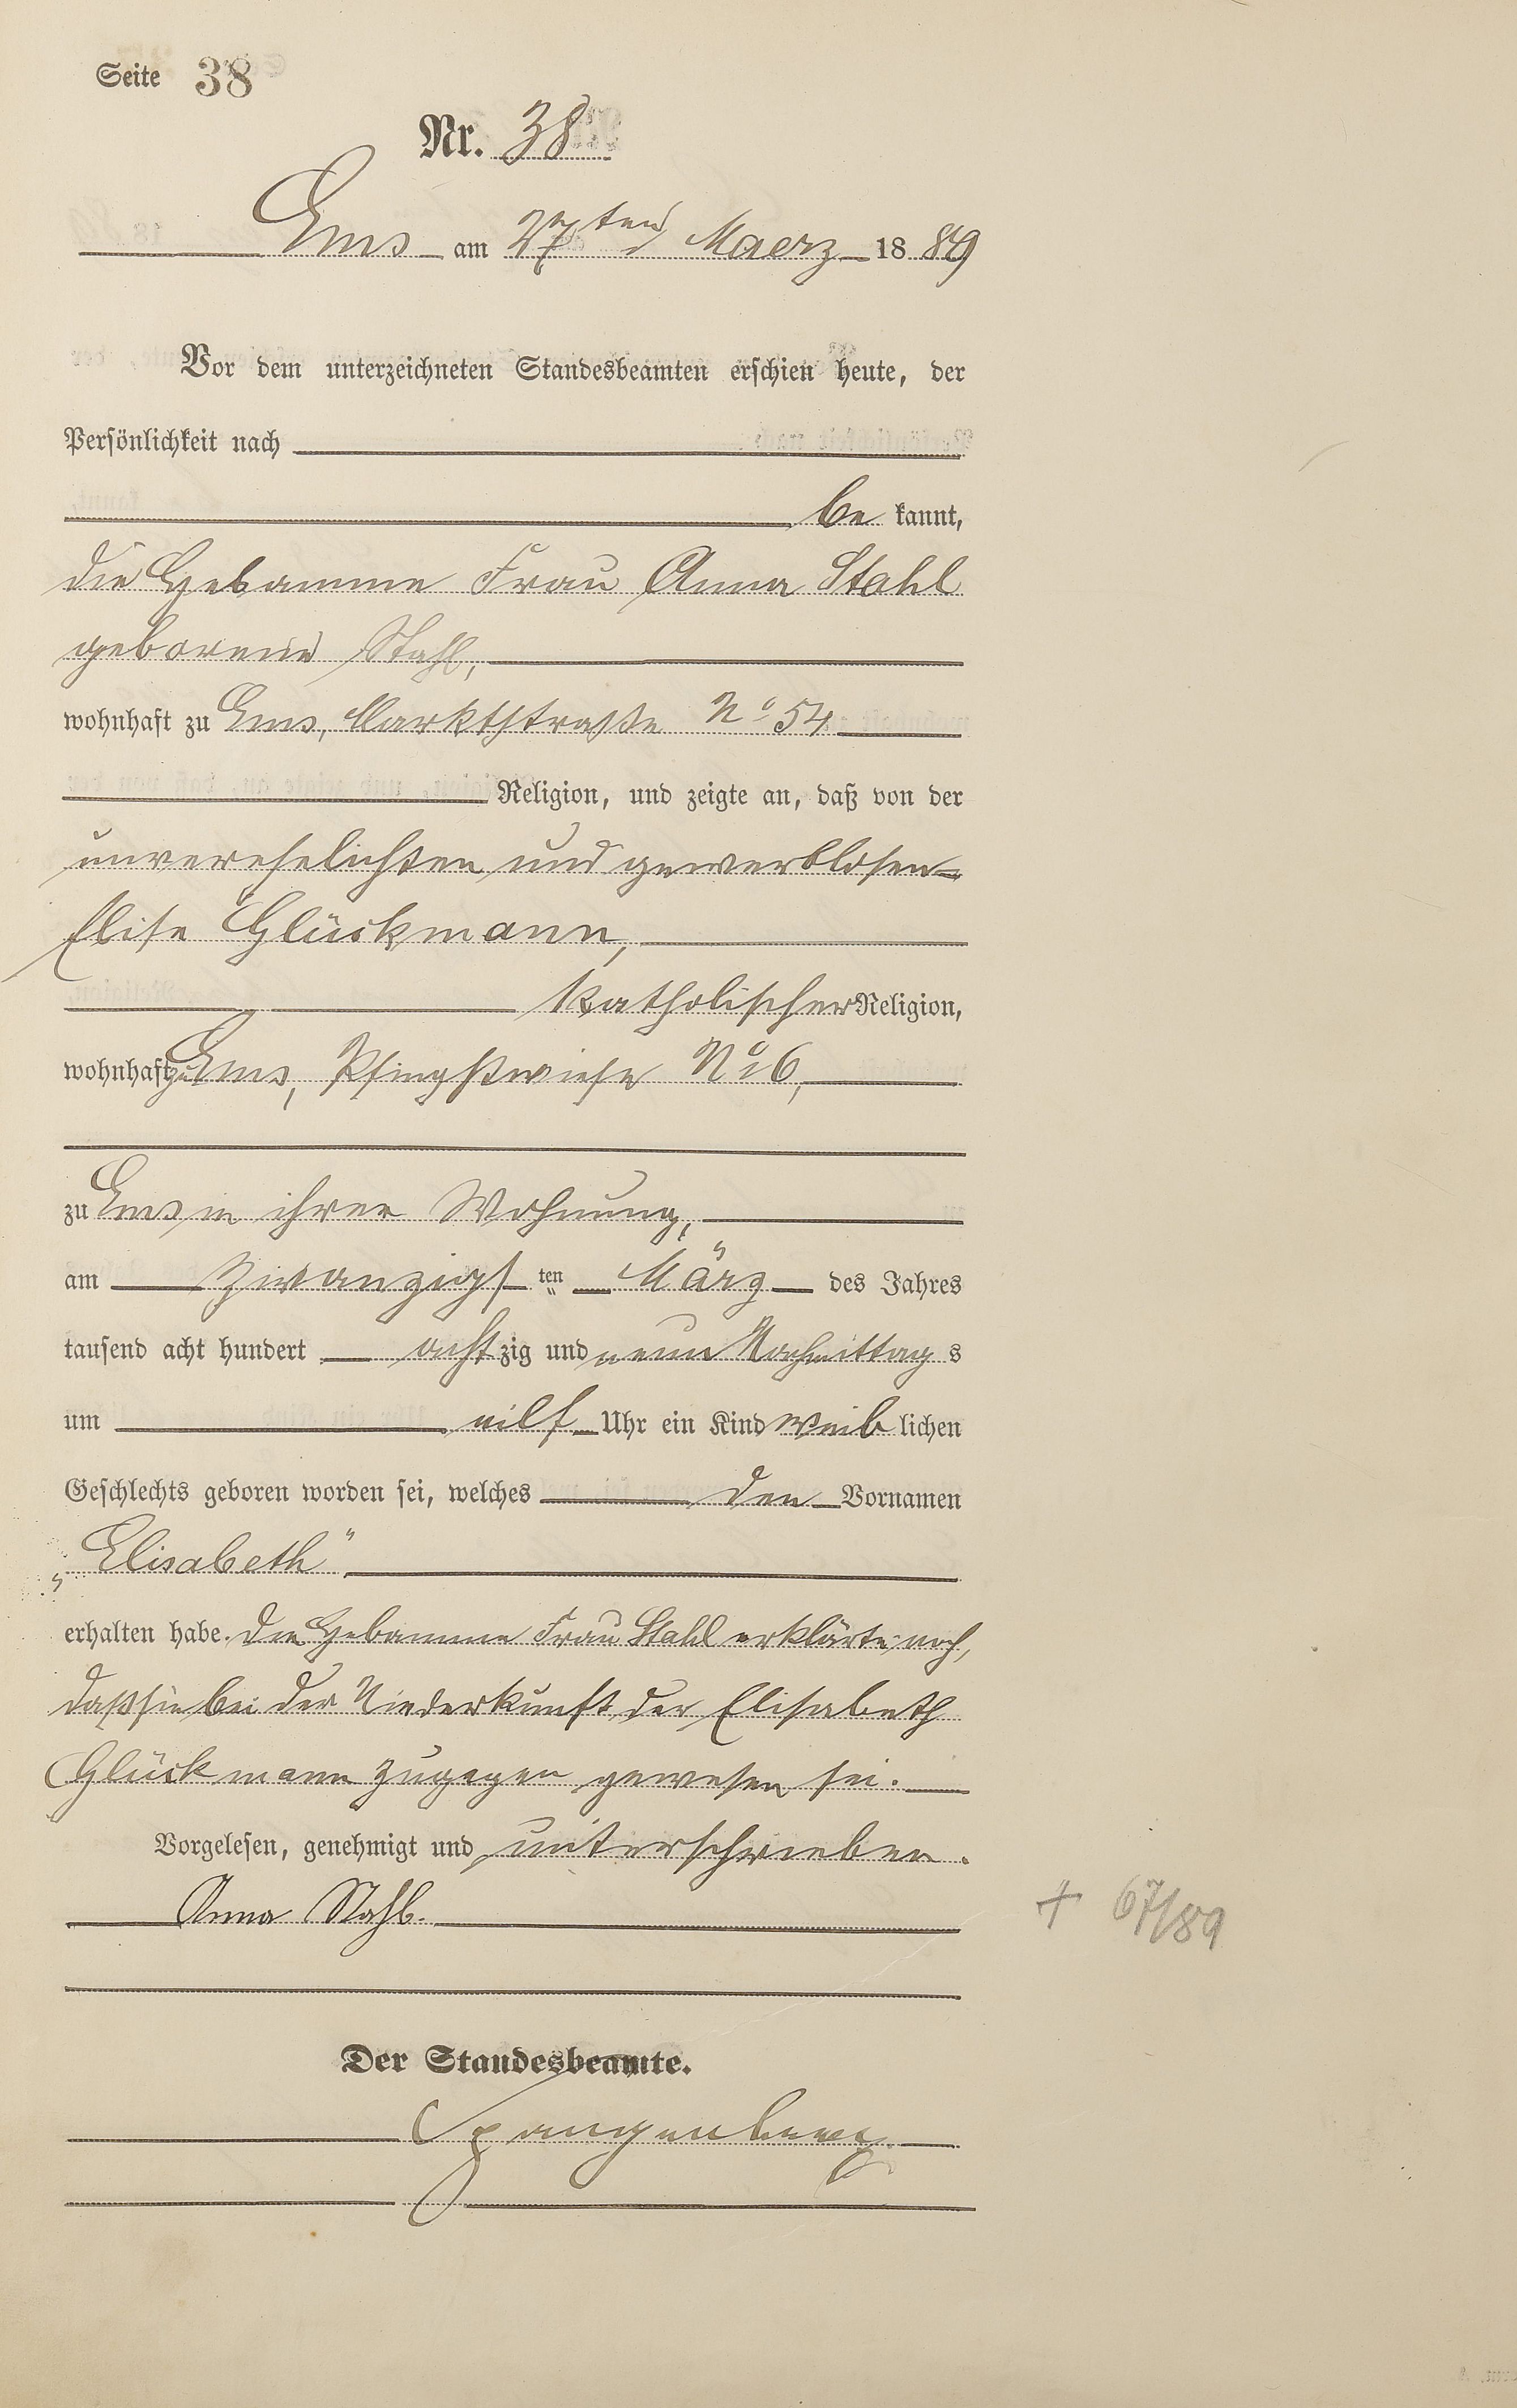 Seite 38
Nr. 38
Ems am 27ten Maerz 1889
Vor dem unterzeichneten Standesbeamten erschien heute, der
Persönlichkeit nach
be kannt,
die Hebamme Frau Anna Stahl
geborene Stahl,
wohnhaft zu Ems, Marktstraße No 54
Religion, und zeigte an, daß von der
unverehelichten und gewerblosen
Elise Glückmann,
katholischer Religion,
wohnhaft zu Ems, Pfingstwiese No 6,
zu Ems in ihrer Wohnung,
am zwanzigsten März des Jahres
tausend acht hundert achtzig und neun Nachmittags
um eilf Uhr ein Kind weiblichen
Geschlechts geboren worden sei, welches den Vornamen
„Elisabeth"
erhalten habe. Die Hebamme Frau Stahl erklärte noch,
daß sie bei der Niederkunft der Elisabeth
Glückmann zugegen gewesen sei.
Vorgelesen, genehmigt und unterschrieben.
Anna Stahl.
+ 67/89
Der Standesbeamte.
Spangenberg